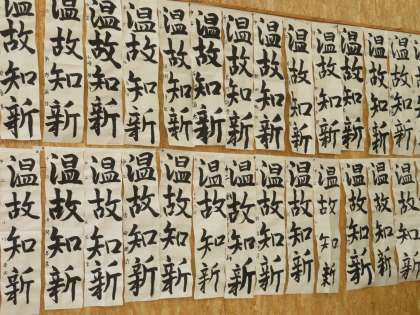 温故知新
温故知新
温故知新
温故知新
温故知新
温故知新
温故知新
温故知新
温故知新
温故知新
温故知新
温故知新
温故知新
温故知新
温故知新
温故知新
温故知新
温故知新
温故知新
温故知新
温故知新
温故知新
温故知新
温故知新
温故知新
温故知新